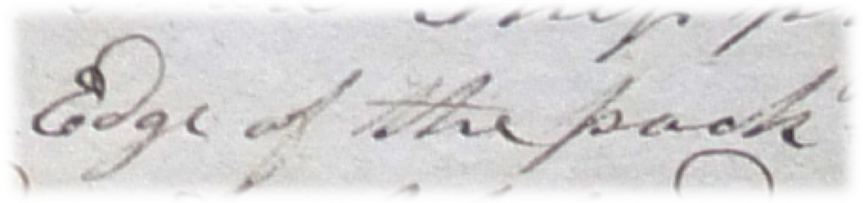 Edge of the pack